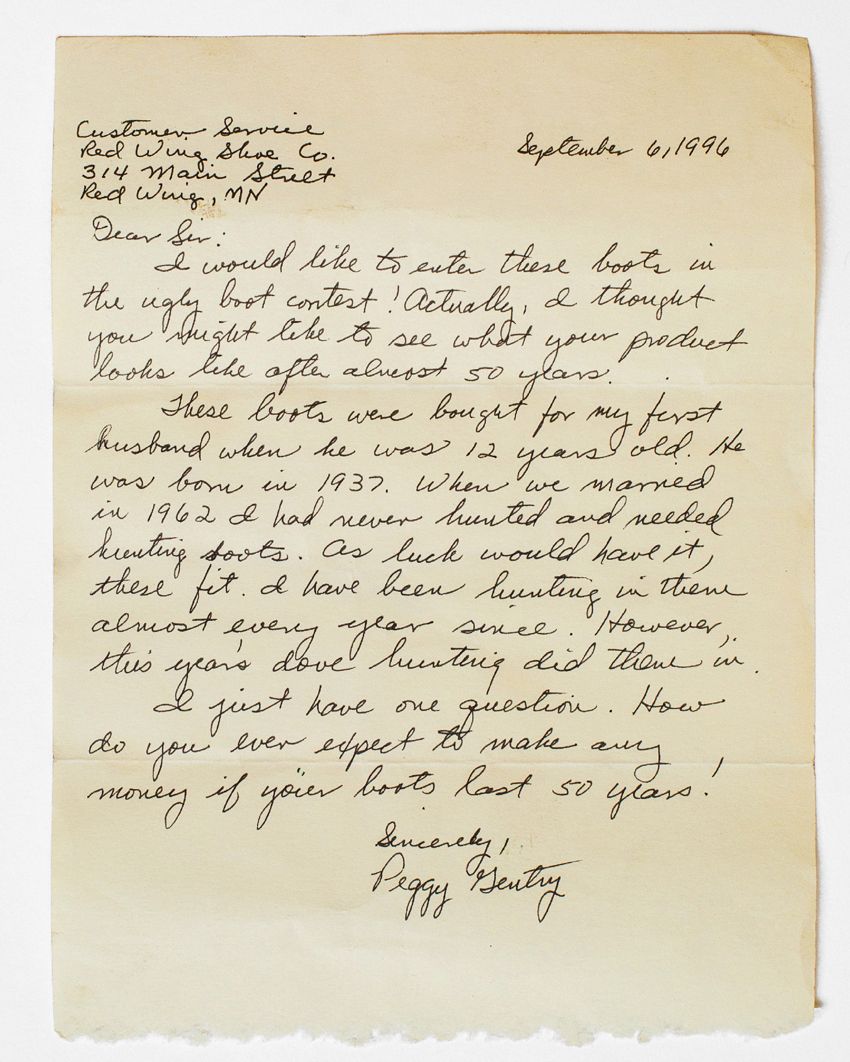 Customer Service
Red Wing Shoe Co.
314 Main Street
Red Wing, MN
September 6, 1996
Dear Sir:
I would like to enter these boots in
the ugly boot contest! Actually, I thought
you might like to see what your product
looks like after almost 50 years.
These boots were bought for my first
husband when he was 12 years old. He
was born in 1937. When we married
in 1962 I had never hunted and needed
hunting boots. As luck would have it,
these fit. I have been hunting in them
almost every year since. However,
this year's dove hunting did them in.
I just have one question. How
do you ever expect to make any
money if your boots last 50 years!
Sincerely,
Peggy Gentry